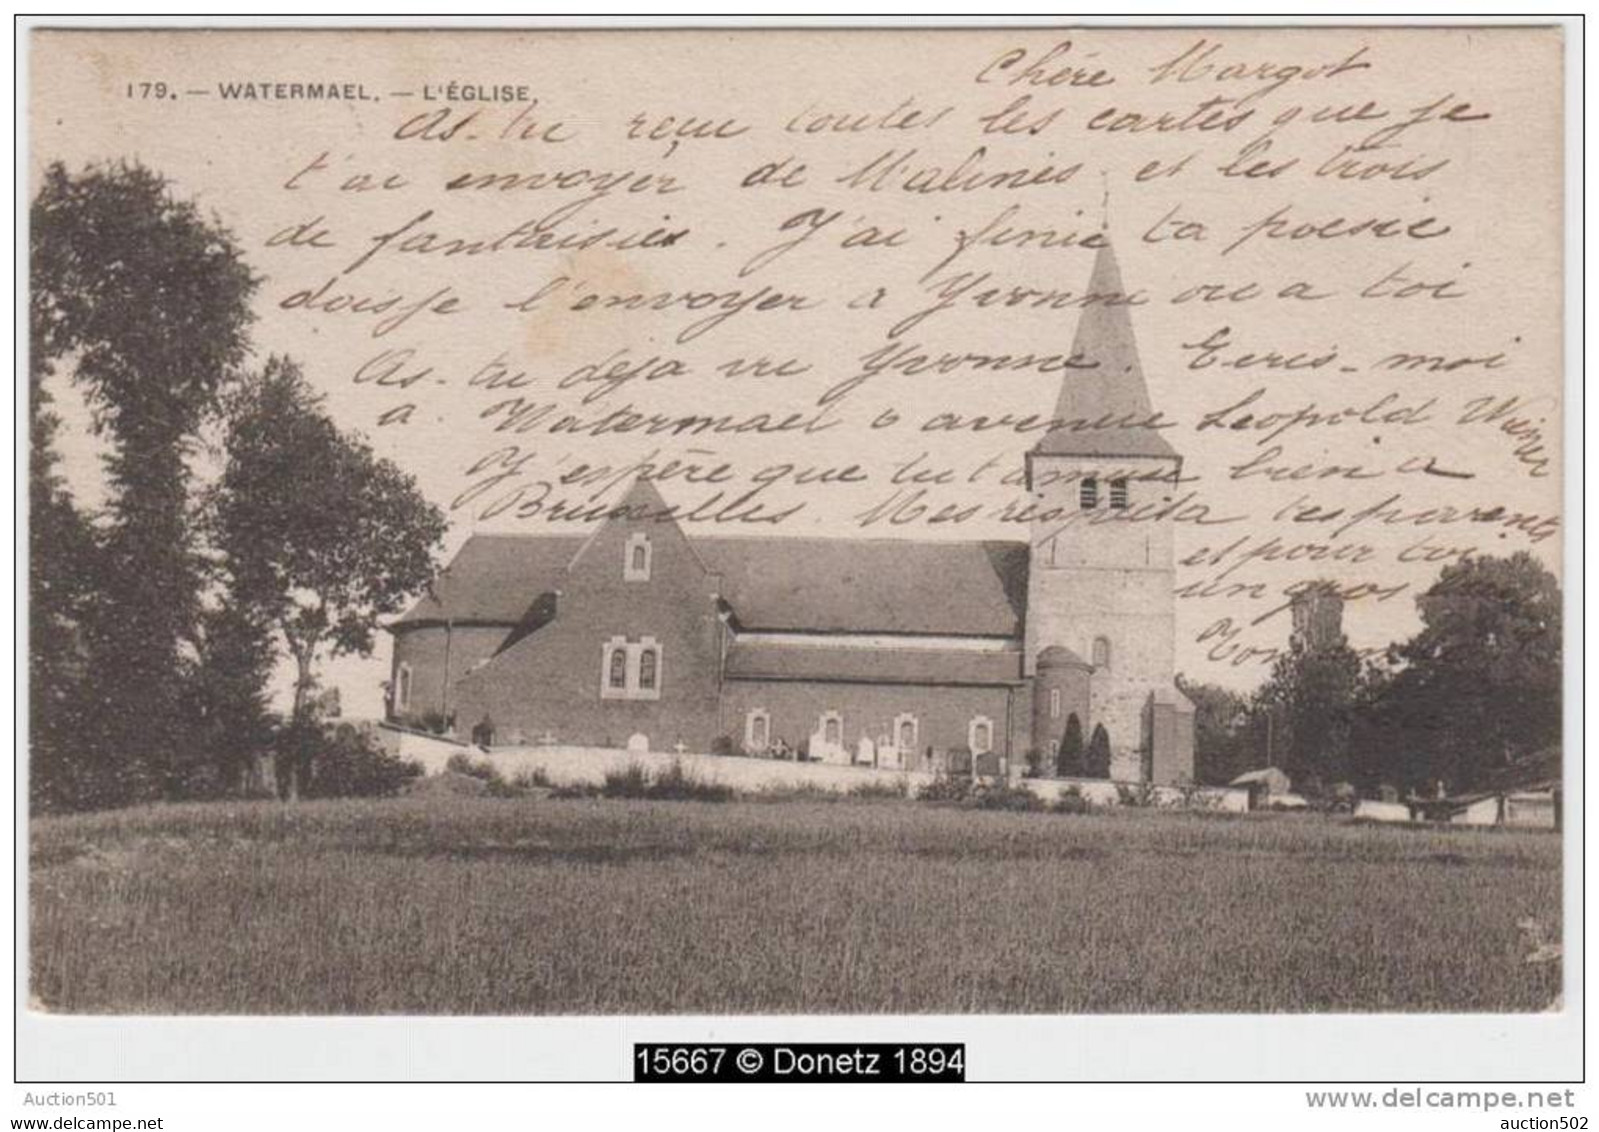 179. — WATERMAEL. — L'ÉGLISE.
Chére Margot
As-tu reçu toutes les cartes que je
t'ai envoyer de Malines et les trois
de fantaisies. J'ai finie ta poesie
doisje l'envoyer a Yvonne ou a toi
As-tu deja vu Yvonne. Ecris-moi
a Watermael 6 avenue Leopold Wiener
J'espère que tu t'amuse bien a
Bruxelles. Mes respects a tes parents
et pour toi
un gros
15667 © Donetz 1894
Auction501
www.delcampe.net
auction502